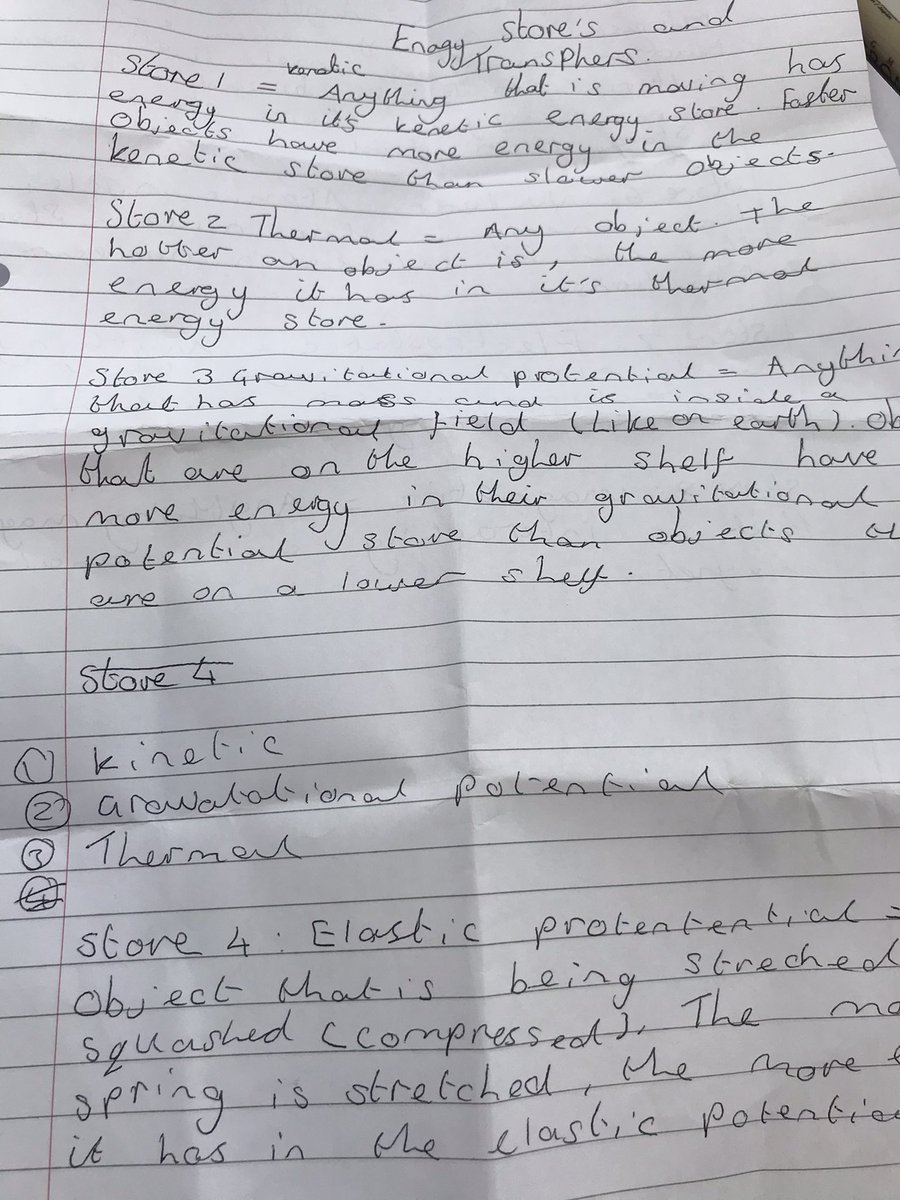 Enagy Store's and
Transphers.
Store 1 = kenetic Anything that is moving has
energy in its kenetic energy store. Faster
objects have more energy in the
kenetic store than slower objects.
Store 2 Thermal = Any object. The
hotter an object is, the more
energy it has in it's thermal
energy store.
Store 3 Gravitational protential = Anythi
that has mass and is inside a
gravitational field (like on earth). Ob
that are on the higher shelf have
more energy in their gravitational
potential store than objects t
are on a lower shelf.
Store 4
① kinetic
② Gravatational potential
③ Thermal
④
Store 4 : Elastic protentential =
Object that is being streched
squashed (compressed). The mo
spring is stretched, the more
it has in the elastic potentia